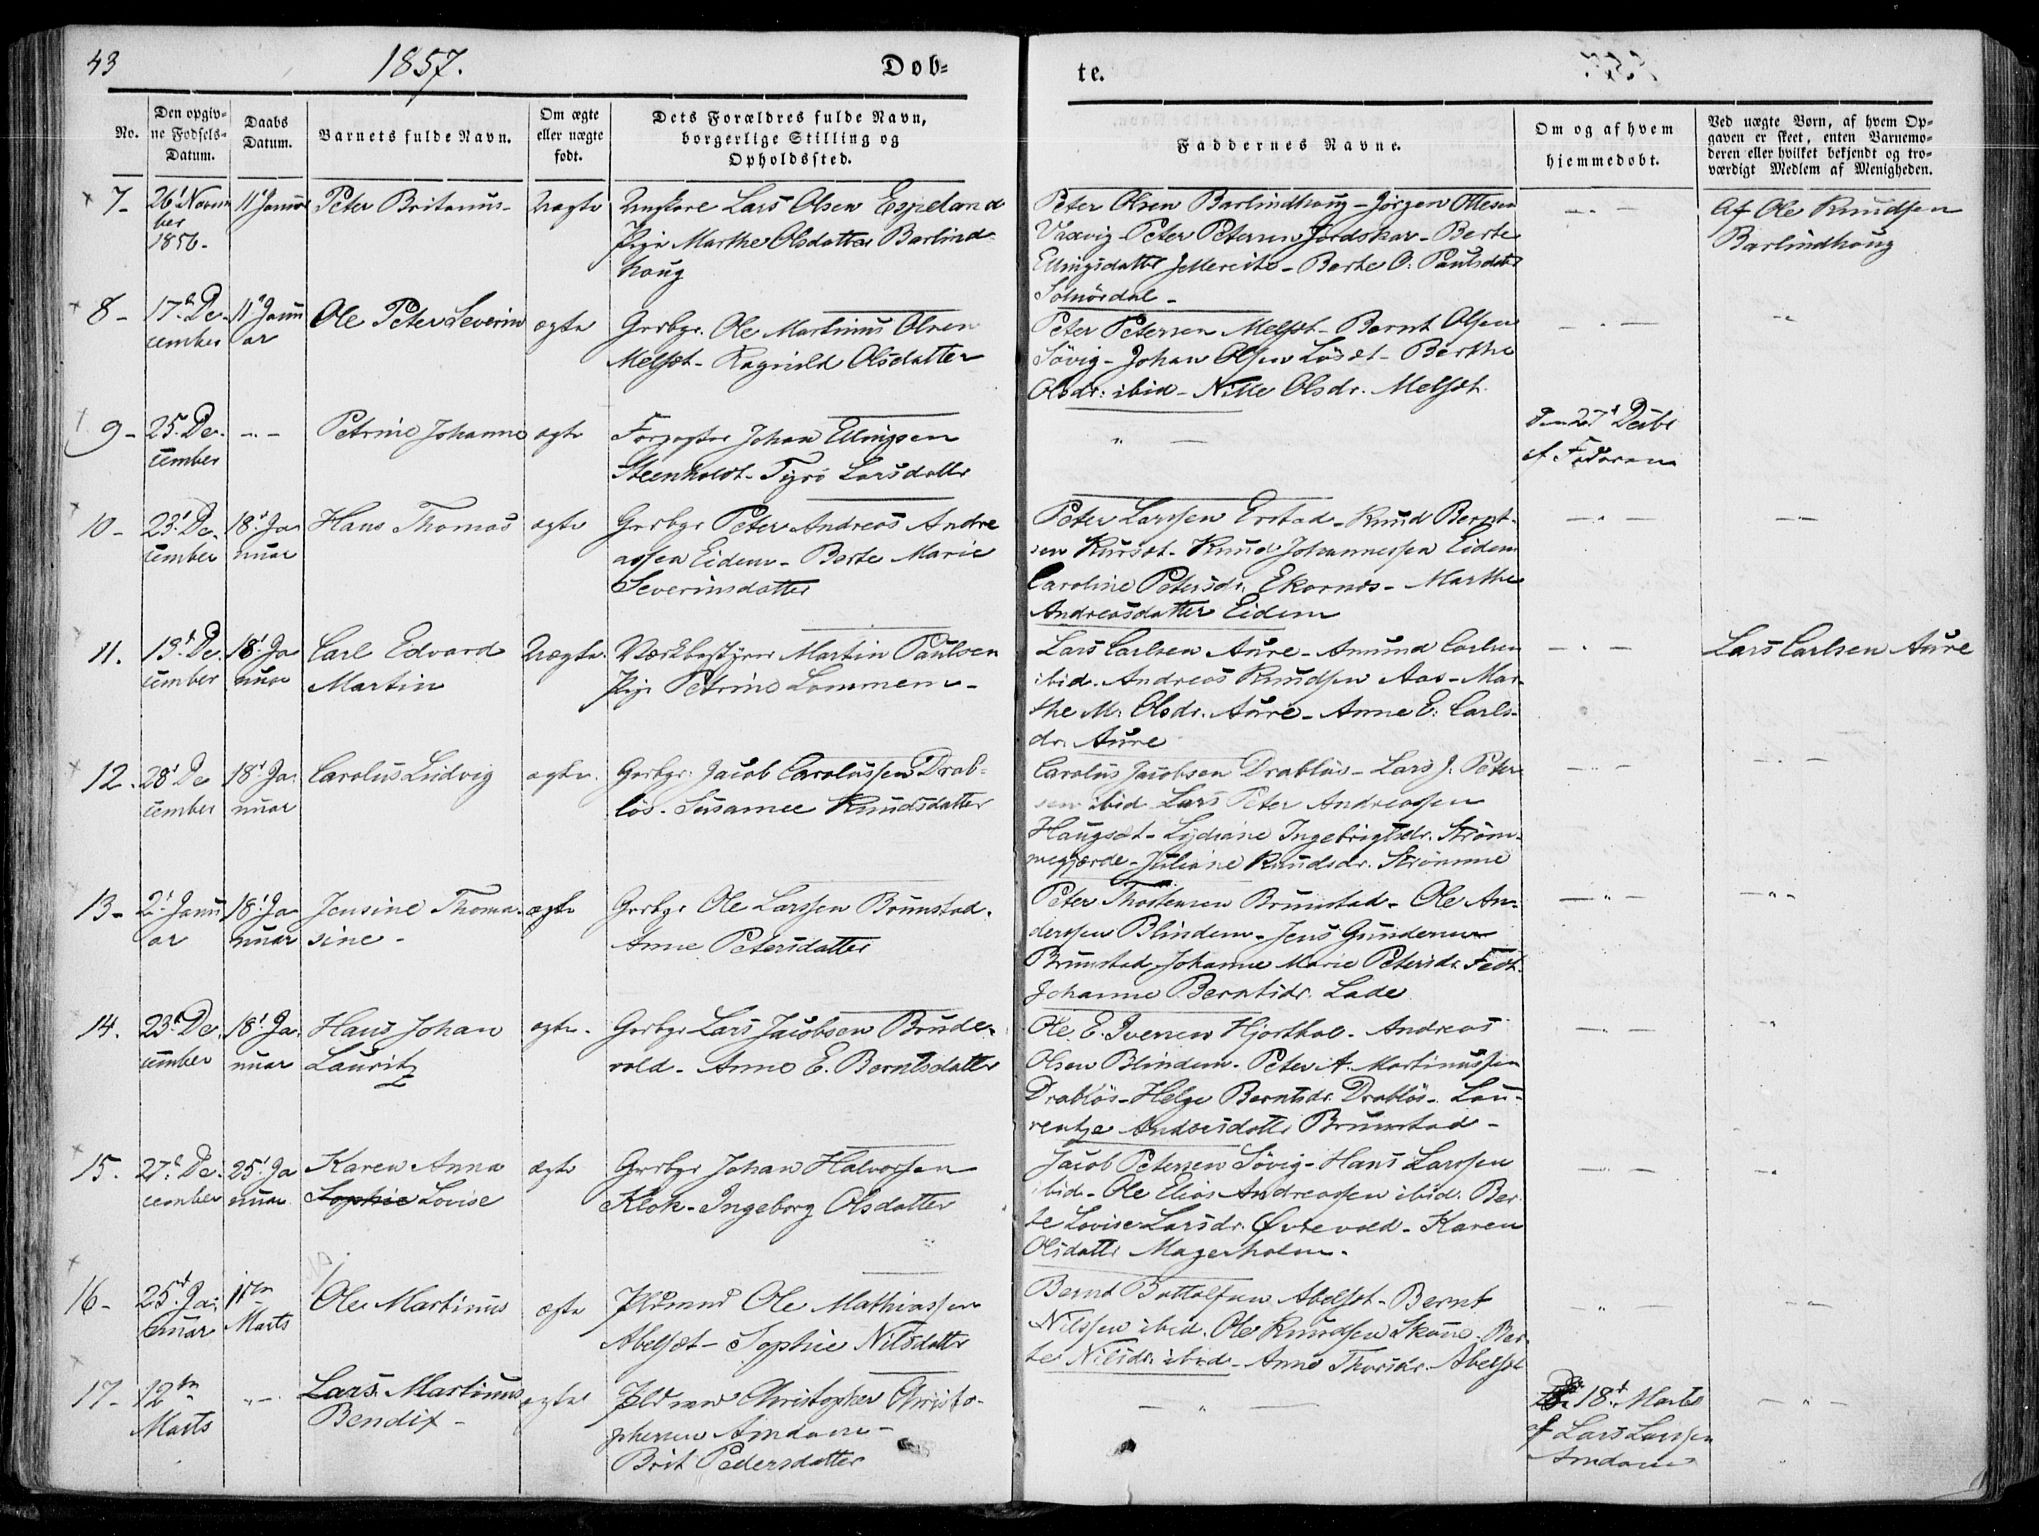 43
1857.
Døb-
te.
No.
Den opgiv-
ne Fødsels-
Datum.
Daabs
Datum.
Barnets fulde Navn.
Om ægte
eller uægte
født.
Dets Forældres fulde Navn,
borgerlige Stilling og
Opholdssted.
Faddernes Navne.
Om og af hvem
hjemmedøbt.
Ved uægte Børn, af hvem Op-
gaven er skeet, enten Barnemo-
deren eller hvilket bekjendt og tro-
værdigt Medlem af Menigheden.
7-
26' Novem
ber
1856-
11' Januar
Peter Britanus-
Uægte
Ungkarl Lars Olsen Espeland
Pige Marthe Olsdatter Barlind-
houg
Peter Olsen Barlindhoug - Jørgen Ottesen
Vaxvig - Peter Petersen Jordskar - Berte
Ellingsdatter - Berte O: Paulsdatter
Solnørdal -
Af Ole Knudsen
Barlindhoug
8-
17de De-
cember
11' Janu
ar
Ole Peter Severin
ægte
Grdbgr. Ole Martinus Olsen
Melsæt - Ragnild Olsdatter
Peter Petersen Melsæt - Bernt Olsen
Søvig - Johan Olsen Løsæt - Berthe
Olsdr: ibid - Nille Olsdr. Melsæt.
9-
25. De-
cember
Petrine Johanne
ægte
Forpagter Johan Ellingsen
Steenholdt - Larsdatter
Den 27' Decbr
af Faderen
10-
23' De-
cember
18' Ja
nuar
Hans Thomas
ægte
Grdbgr Peter Andreas Andre
assen Eidem - Berte Marie
Severinsdatter
Peter Larssen Erstad - Knud Bernt-
sen Kursæt - Knud Johannessen Eidem
Caroline Petersdr. Ekornæs - Marthe
Andreasdatter Eidem
11.
13' De-
cember
18' Ja
nuar
Carl Edvard
Martin
Uægte
Værkbestyrer Martin Paulsen
Pige Petrine Lommem -
Lars Carlsen Aure - Amund Carlsen
ibid. Andreas Knudsen Aas - Mar-
the M: Olsdr. Aure - Anne E: Carls-
dr. Aure
Lars Carlsen Aure
12.
28' De
cember
18' Ja-
nuar
Carolus Ludvig
ægte.
Grdbgr: Jacob Carolussen Drab-
løs - Susanne Knudsdatter
Carolus Jacobsen Drabløs - Lars J. Peter
sen ibid Lars Peter Andreassen
Haugset - Lydiane Ingebrigtsdr. Strøm-
megjærde - Juliane Knudsdr. Strømme
13-
2' Janu
ar
18' Ja
nuar
Jensine Thoma-
sine -
ægte
Grdbgr Ole Larssen Brunstad.
Anne Petersdatter
Peter Thorstensen Brunstad - Ole An-
derssen Blindem - Jens Gundersen
Brunstad Johanne Marie Petersdr.
Johanne Berntsdr. Lade
14.
23' De-
cember
18' Ja-
nuar
Hans Johan
Lauritz
ægte.
Grdbgr Lars Jacobsen Brude-
vold - Anne E. Berntsdatter
Ole E. Iversen Hjorthol - Andreas
Olsen Blindem - Peter A. Martinussen
Drabløs - Helge Berntsdr. Drabløs - Lau-
rentze Andersdatter Brunstad -
15.
27de De-
cember
25' Ja
nuar
Karen Anna
Sophie Lovise
ægte
Grdbgr Johan Halvorsen
Klok - Ingeborg Olsdatter
Jacob Petersen Søvig - Hans Larssen
ibid - Ole Elias Andreassen ibid. Ber-
te Lovise Larsdr. Øvrevold - Karen
Olsdatter Magerholm.
16-
25de Ja-
nuar
1ste
Marts
Ole Martinus
ægte
Pldsmd Ole Mathiassen
Abelsæt - Sophie Nilsdatter
Bernt Bottolfsen Abelsæt - Bernt
Nilssen ibid. Ole Knudsen - Ber-
te Nilsdr: ibid - Anne Thorsdr. Abelsæt
17-
12te
Marts
Lars Martinus
Bendix -
ægte
Pldsmd Christopher Christo-
phersen Amdam -
Brit Pedersdatter
18' Marts
af Lars Larssen
Amdam